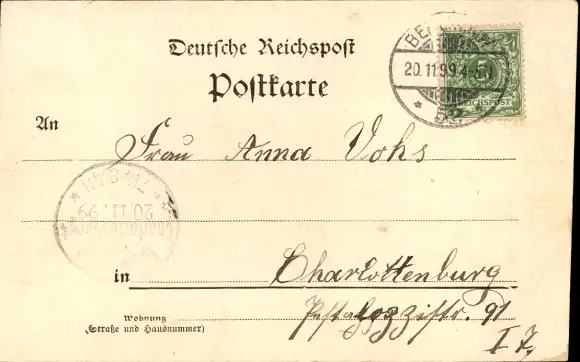 Deutsche Reichspost
Postkarte
20.11.99. 4-5
5
REICHSPOST
An
Frau Anna Vohs
20.11.99
in
Charlottenburg
Pestalozzistr. 91
I 7.
Wohnung
(Straße und Hausnummer)